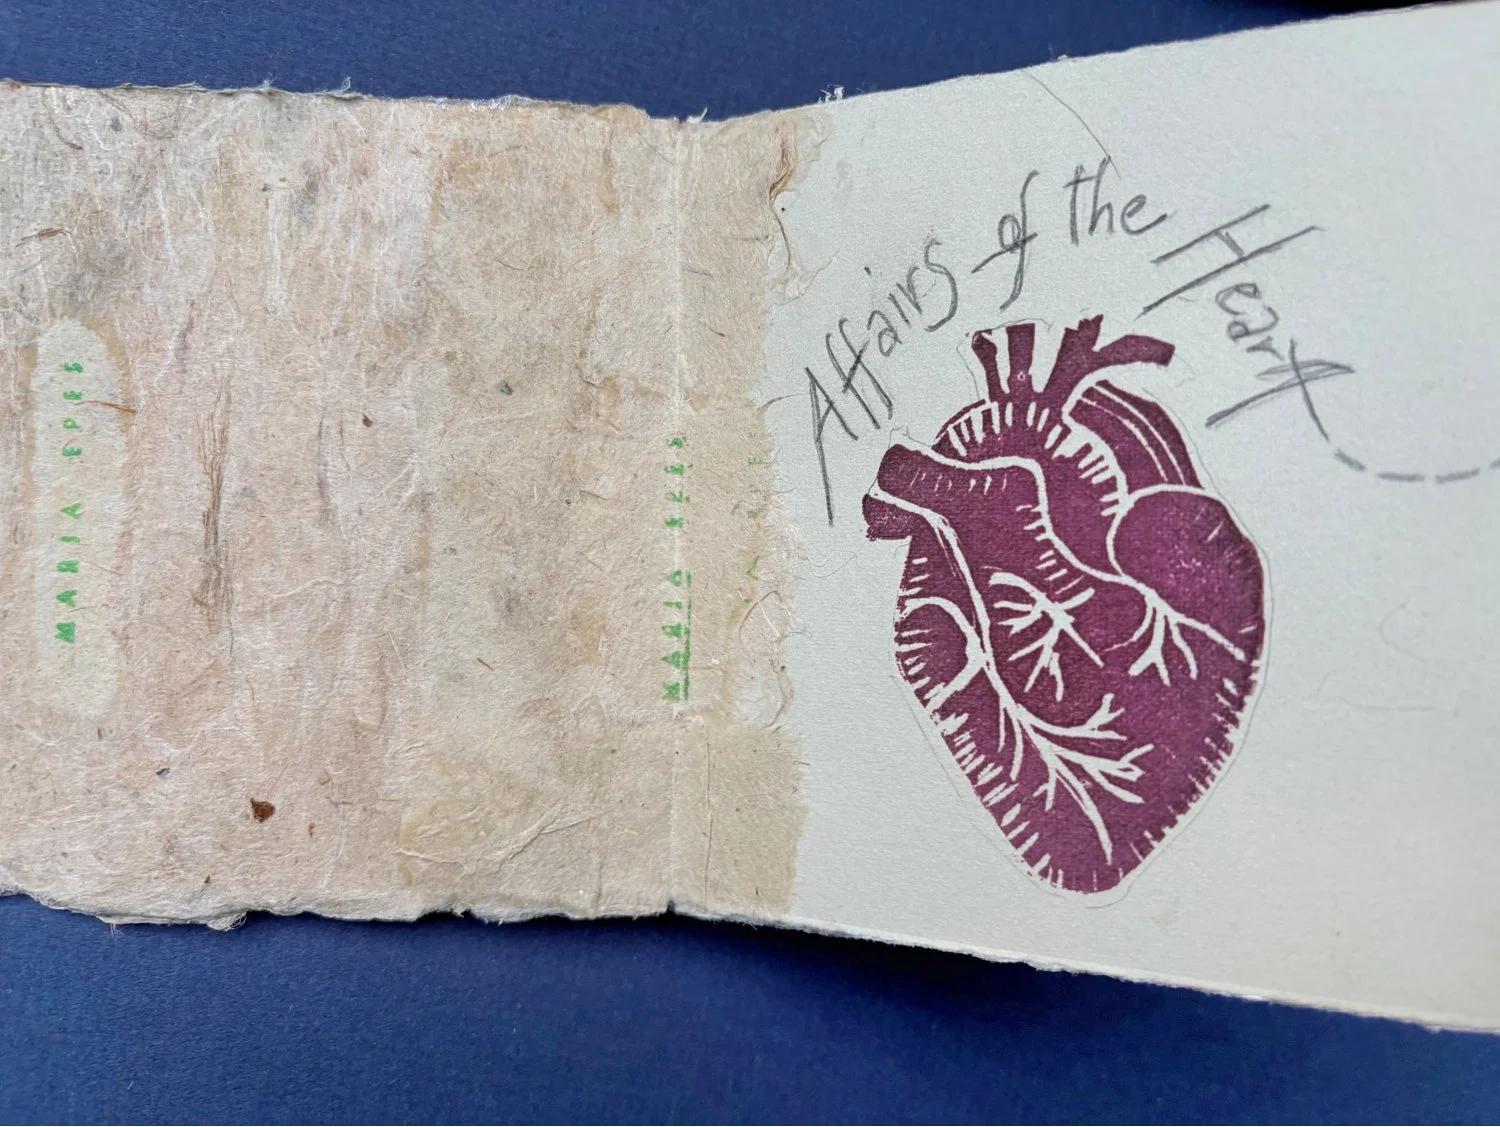 MARIA EPES
MARIA EPES
Affairs of the Heart